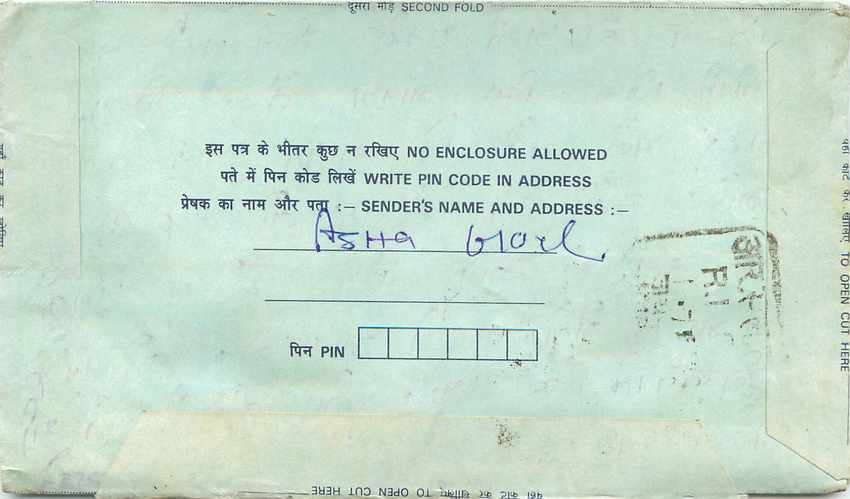 दूसरा मोड़ SECOND FOLD
इस पत्र के भीतर कुछ न रखिए NO ENCLOSURE ALLOWED
पते में पिन कोड लिखें WRITE PIN CODE IN ADDRESS
प्रेषक का नाम और पता :— SENDER'S NAME AND ADDRESS :—
Asha Goel
पिन PIN
यहां काट कर खोलिए TO OPEN CUT HERE
यहां काट कर खोलिए TO OPEN CUT HERE